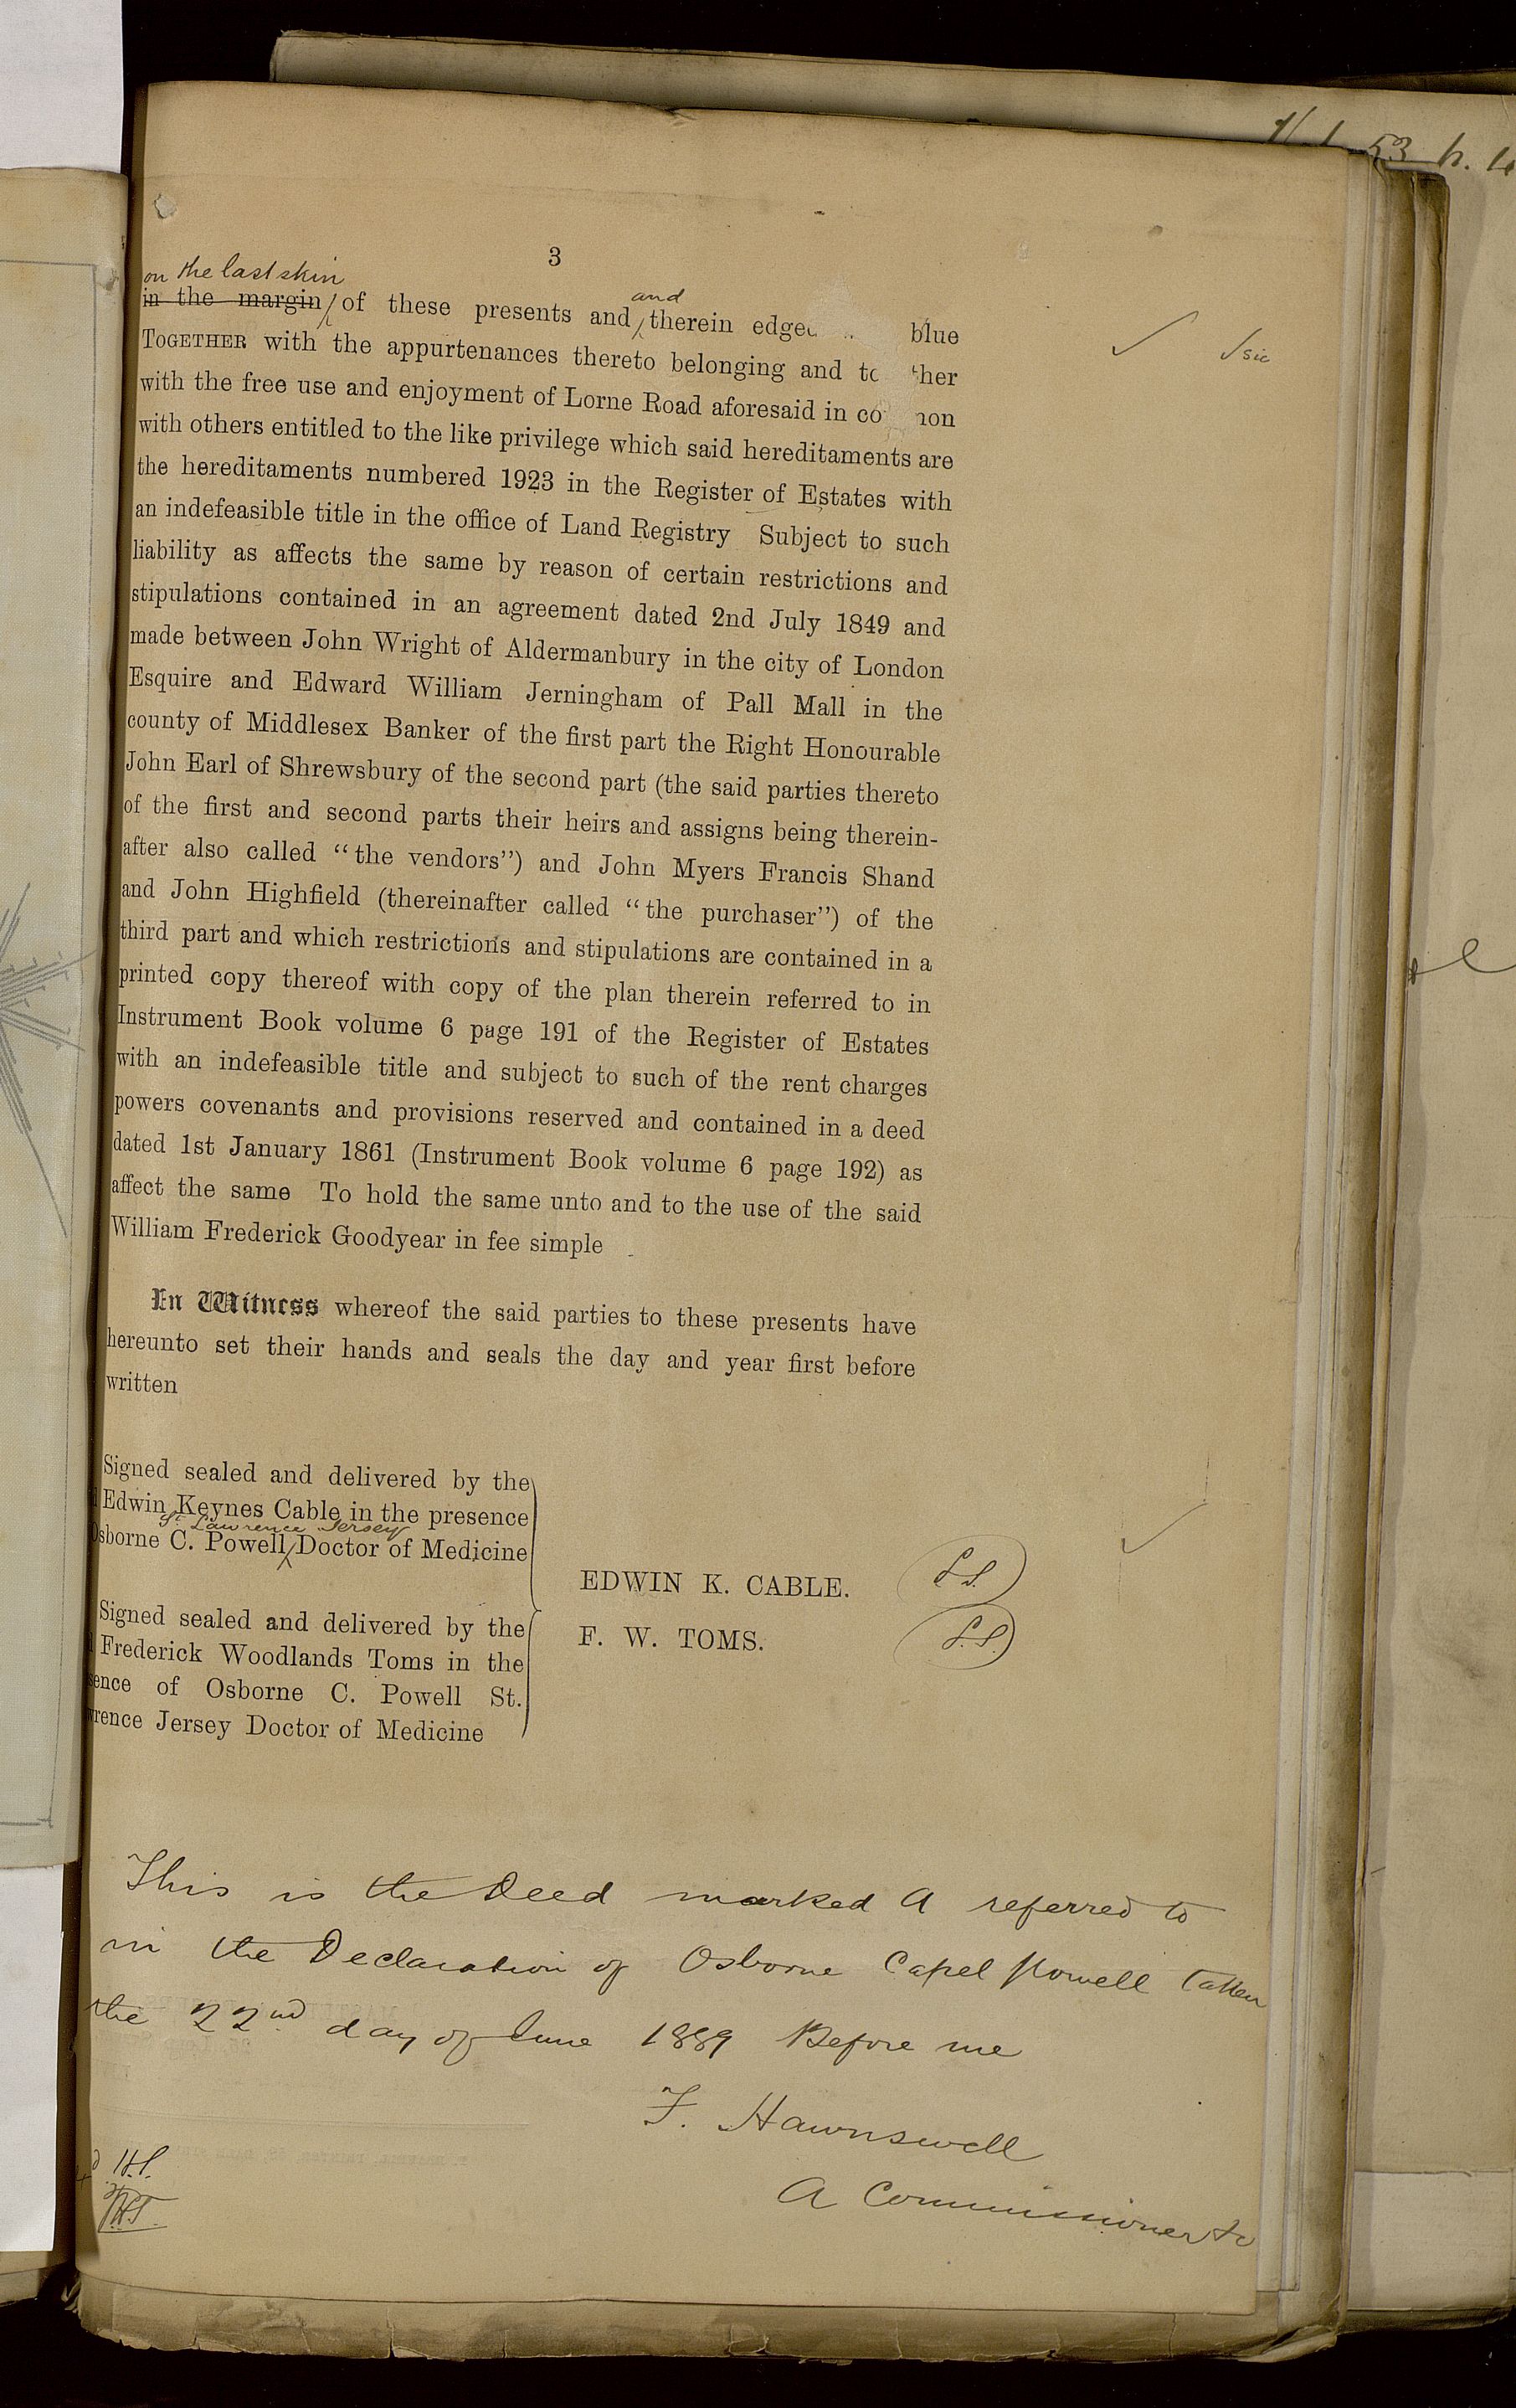 3
on the last skin
in the margin of these presents and and therein edged blue
TOGETHER with the appurtenances thereto belonging and to ther
with the free use and enjoyment of Lorne Road aforesaid in co mon
with others entitled to the like privilege which said hereditaments are
the hereditaments numbered 1923 in the Register of Estates with
an indefeasible title in the office of Land Registry Subject to such
liability as affects the same by reason of certain restrictions and
stipulations contained in an agreement dated 2nd July 1849 and
made between John Wright of Aldermanbury in the city of London
Esquire and Edward William Jerningham of Pall Mall in the
county of Middlesex Banker of the first part the Right Honourable
John Earl of Shrewsbury of the second part (the said parties thereto
of the first and second parts their heirs and assigns being therein-
after also called "the vendors") and John Myers Francis Shand
and John Highfield (thereinafter called "the purchaser") of the
third part and which restrictions and stipulations are contained in a
printed copy thereof with copy of the plan therein referred to in
Instrument Book volume 6 page 191 of the Register of Estates
with an indefeasible title and subject to such of the rent charges
powers covenants and provisions reserved and contained in a deed
dated 1st January 1861 (Instrument Book volume 6 page 192) as
affect the same To hold the same unto and to the use of the said
William Frederick Goodyear in fee simple
sic
In Witness whereof the said parties to these presents have
hereunto set their hands and seals the day and year first before
written
Signed sealed and delivered by the
Edwin Keynes Cable in the presence
St. Lawrence Jersey
Osborne C. Powell Doctor of Medicine
EDWIN K. CABLE. L.S.
Signed sealed and delivered by the
Frederick Woodlands Toms in the
sence of Osborne C. Powell St.
wrence Jersey Doctor of Medicine
F. W. TOMS. L.S.
This is the Deed marked A referred to
in the Declaration of Osborne Capel Powell taken
the 22nd day of June 1889 Before me
F. Hawnswell
A Commissioner &c